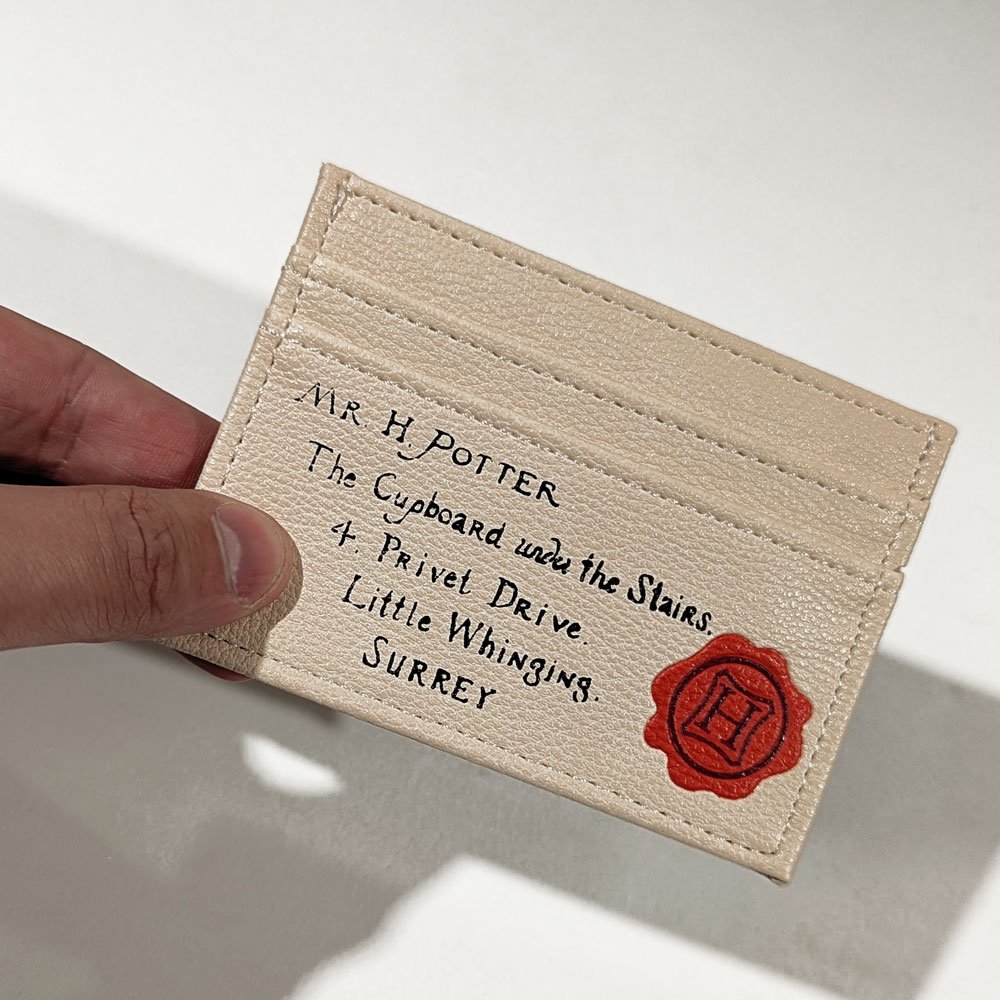 MR. H. POTTER
The Cupboard under the Stairs.
4. Privet Drive.
Little Whinging.
SURREY
H